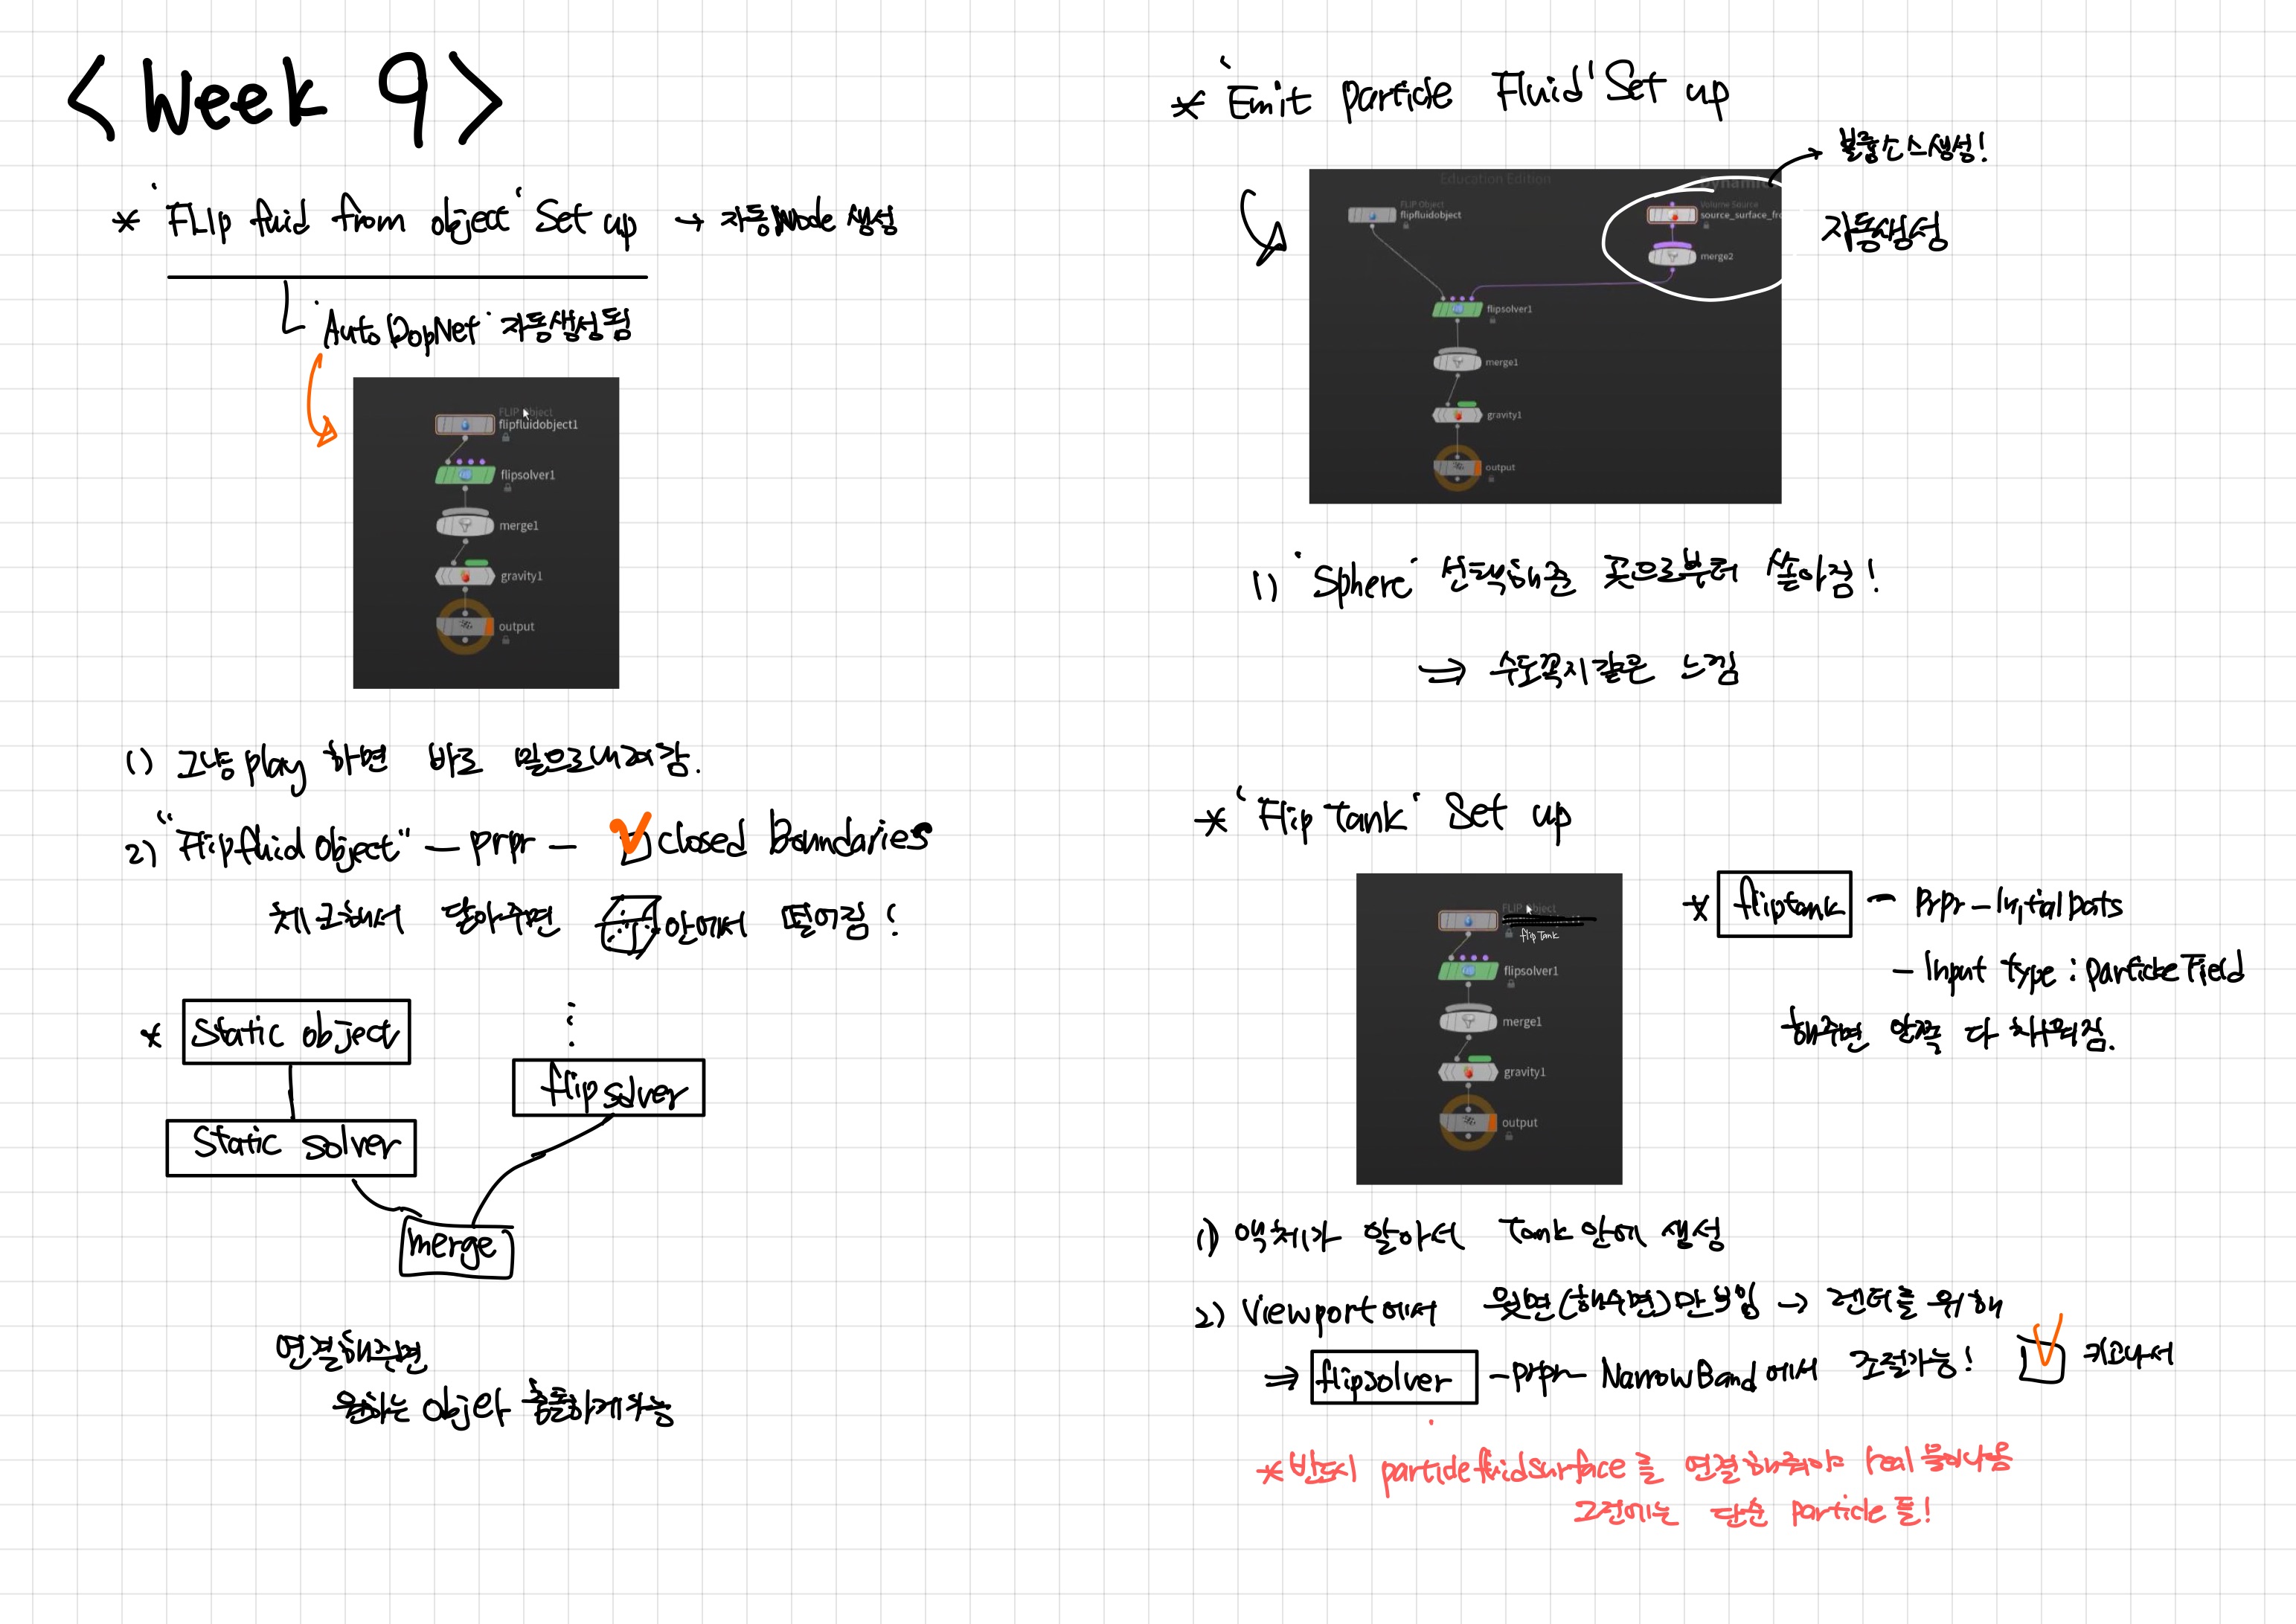 <Week 9>
* 'FLIp fluid from object' Set up → 자동Node 생성
'AutoDopNet' 자동생성됨
FLIP Object
flipfluidobject1
flipsolver1
merge1
gravity1
output
1) 그냥 play 하면 바로 밑으로 내려감.
2) "Flipfluid object" — prpr — closed Boundaries
체크해서 닫아주면 안에서 떨어짐!
* Static object
flip solver
Static solver
merge
연결해주면
원하는 objet와 충돌하게 가능
* 'Emit particle Fluid' Set up
→ 볼륨소스생성!
자동생성
Education Edition
Dynamic
FLIP Object
flipfluidobject
Volume Source
source_surface_fro
merge2
flipsolver1
merge1
gravity1
output
1) 'Sphere' 선택해준 곳으로부터 쏟아짐!
⇒ 수도꼭지같은 느낌
* 'Flip Tank' Set up
FLIP Object
flip Tank
flipsolver1
merge1
gravity1
output
* fliptank — prpr — Initial Data
— Input type : particle Field
해주면 안쪽 다 채워짐.
1) 액체가 알아서 Tank 안에 생성
2) Viewport에서 윗면(해수면)만 보임 → 렌더를 위해
⇒ flipsolver — prpr — NarrowBand에서 조절가능! 키고나서
* 반드시 particlefluidsurface를 연결해줘야 real 물이나옴
그전에는 단순 particle들!